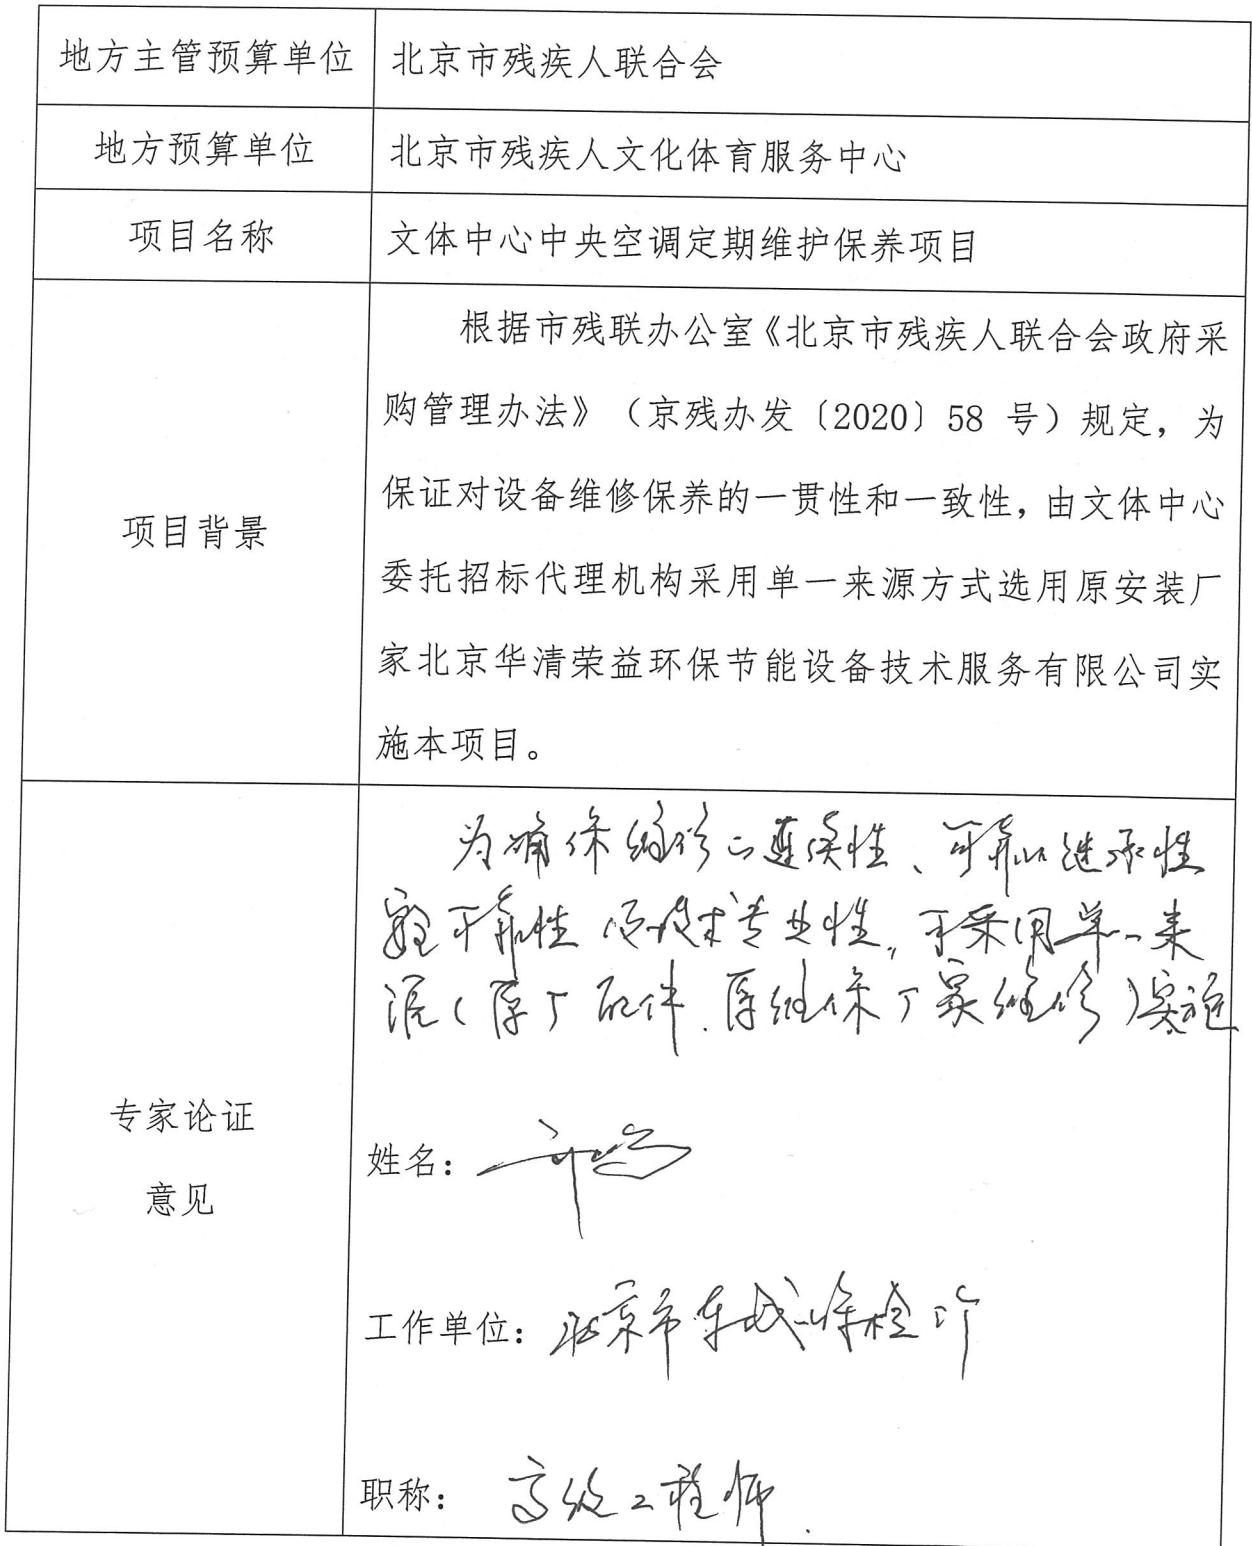 地方主管预算单位 北京市残疾人联合会
地方预算单位 北京市残疾人文化体育服务中心
项目名称 文体中心中央空调定期维护保养项目
项目背景
根据市残联办公室《北京市残疾人联合会政府采
购管理办法》（京残办发〔2020〕58 号）规定，为
保证对设备维修保养的一贯性和一致性，由文体中心
委托招标代理机构采用单一来源方式选用原安装厂
家北京华清荣益环保节能设备技术服务有限公司实
施本项目。
专家论证
意见
为确保维修的连续性、可靠 继承性
可靠性 技术专业性，可采用单一来
源（原厂配件、原维保厂家维修）实施
姓名：
工作单位：北京市东城 检
职称：高级工程师.